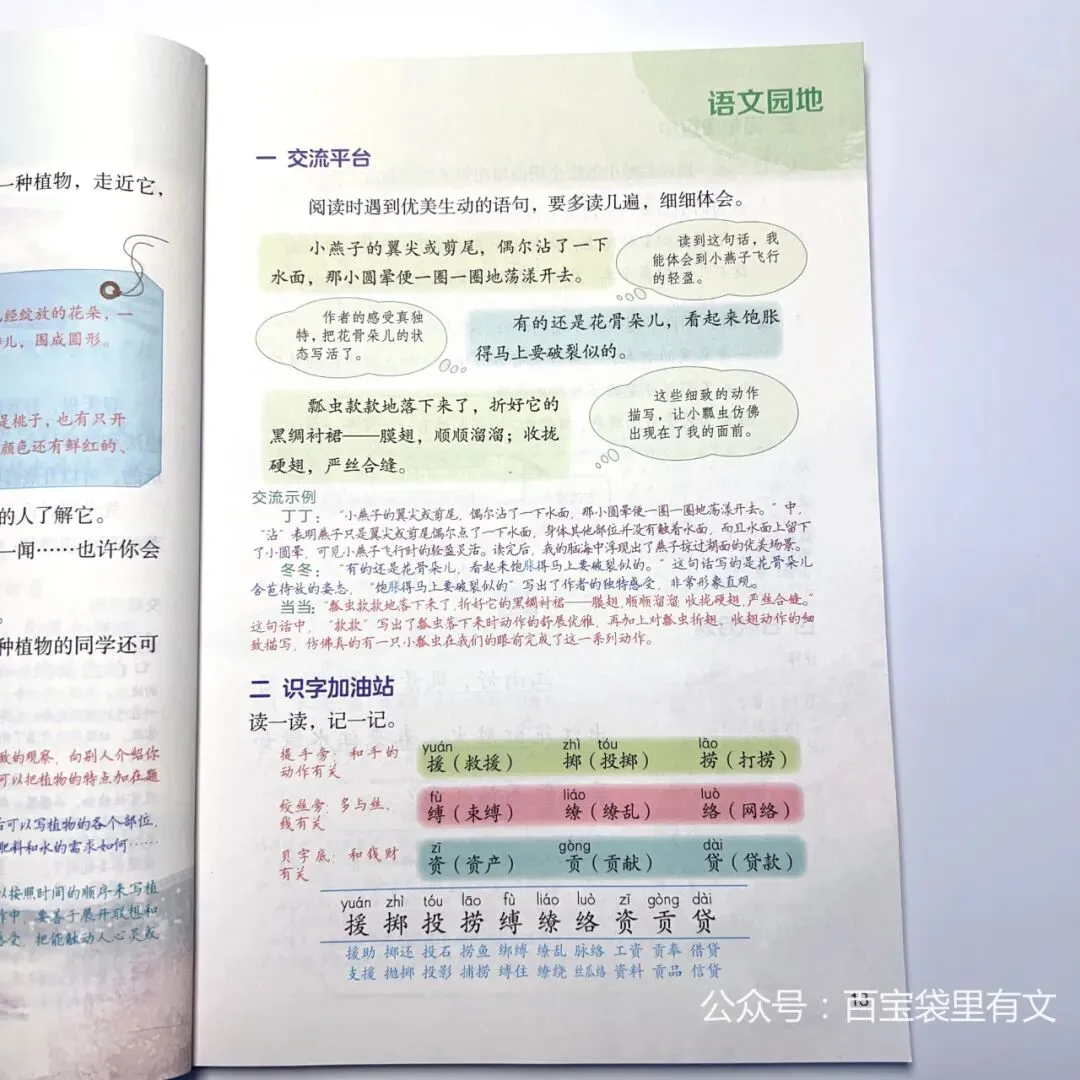 一种植物，走近它，
经绽放的花朵，一
儿，围成圆形。
是桃子，也有只开
颜色还有鲜红的、
的人了解它。
一闻……也许你会
种植物的同学还可
致的观察，向别人介绍你
可以把植物的特点加在题
后可以写植物的各个部位，
肥料和水的需求如何……
以按照时间的顺序来写植
作中，要善于展开联想和
感受，把能触动人心灵或
语文园地
一 交流平台
阅读时遇到优美生动的语句，要多读几遍，细细体会。
小燕子的翼尖或剪尾，偶尔沾了一下
水面，那小圆晕便一圈一圈地荡漾开去。
读到这句话，我
能体会到小燕子飞行
的轻盈。
作者的感受真独
特，把花骨朵儿的状
态写活了。
有的还是花骨朵儿，看起来饱胀
得马上要破裂似的。
瓢虫款款地落下来了，折好它的
黑绸衬裙——膜翅，顺顺溜溜；收拢
硬翅，严丝合缝。
这些细致的动作
描写，让小瓢虫仿佛
出现在了我的面前。
交流示例
丁丁：“小燕子的翼尖或剪尾，偶尔沾了一下水面，那小圆晕便一圈一圈地荡漾开去。”中，
“沾”表明燕子只是翼尖或剪尾偶尔点了一下水面，身体其他部位并没有触着水面，而且水面上留下
了小圆晕，可见小燕子飞行时的轻盈灵活。读完后，我的脑海中浮现出了燕子掠过湖面的优美场景。
冬冬：“有的还是花骨朵儿，看起来饱胀得马上要破裂似的。”这句话写的是花骨朵儿
含苞待放的姿态，“饱胀得马上要破裂似的”写出了作者的独特感受，非常形象直观。
当当：“瓢虫款款地落下来了，折好它的黑绸衬裙——膜翅，顺顺溜溜；收拢硬翅，严丝合缝。”
这句话中，“款款”写出了瓢虫落下来时动作的舒展优雅，再加上对瓢虫折翅、收翅动作的细
致描写，仿佛真的有一只小瓢虫在我们的眼前完成了这一系列动作。
二 识字加油站
读一读，记一记。
提手旁：和手的
动作有关
yuán zhì tóu lāo
援（救援） 掷（投掷） 捞（打捞）
绞丝旁：多与丝、
线有关
fù liáo luò
缚（束缚） 缭（缭乱） 络（网络）
贝字底：和钱财
有关
zī gòng dài
资（资产） 贡（贡献） 贷（贷款）
yuán zhì tóu lāo fù liáo luò zī gòng dài
援 掷 投 捞 缚 缭 络 资 贡 贷
援助 掷还 投石 捞鱼 绑缚 缭乱 脉络 工资 贡奉 借贷
支援 抛掷 投影 捕捞 缚住 缭绕 丝瓜络 资料 贡品 信贷
13
公众号：百宝袋里有文